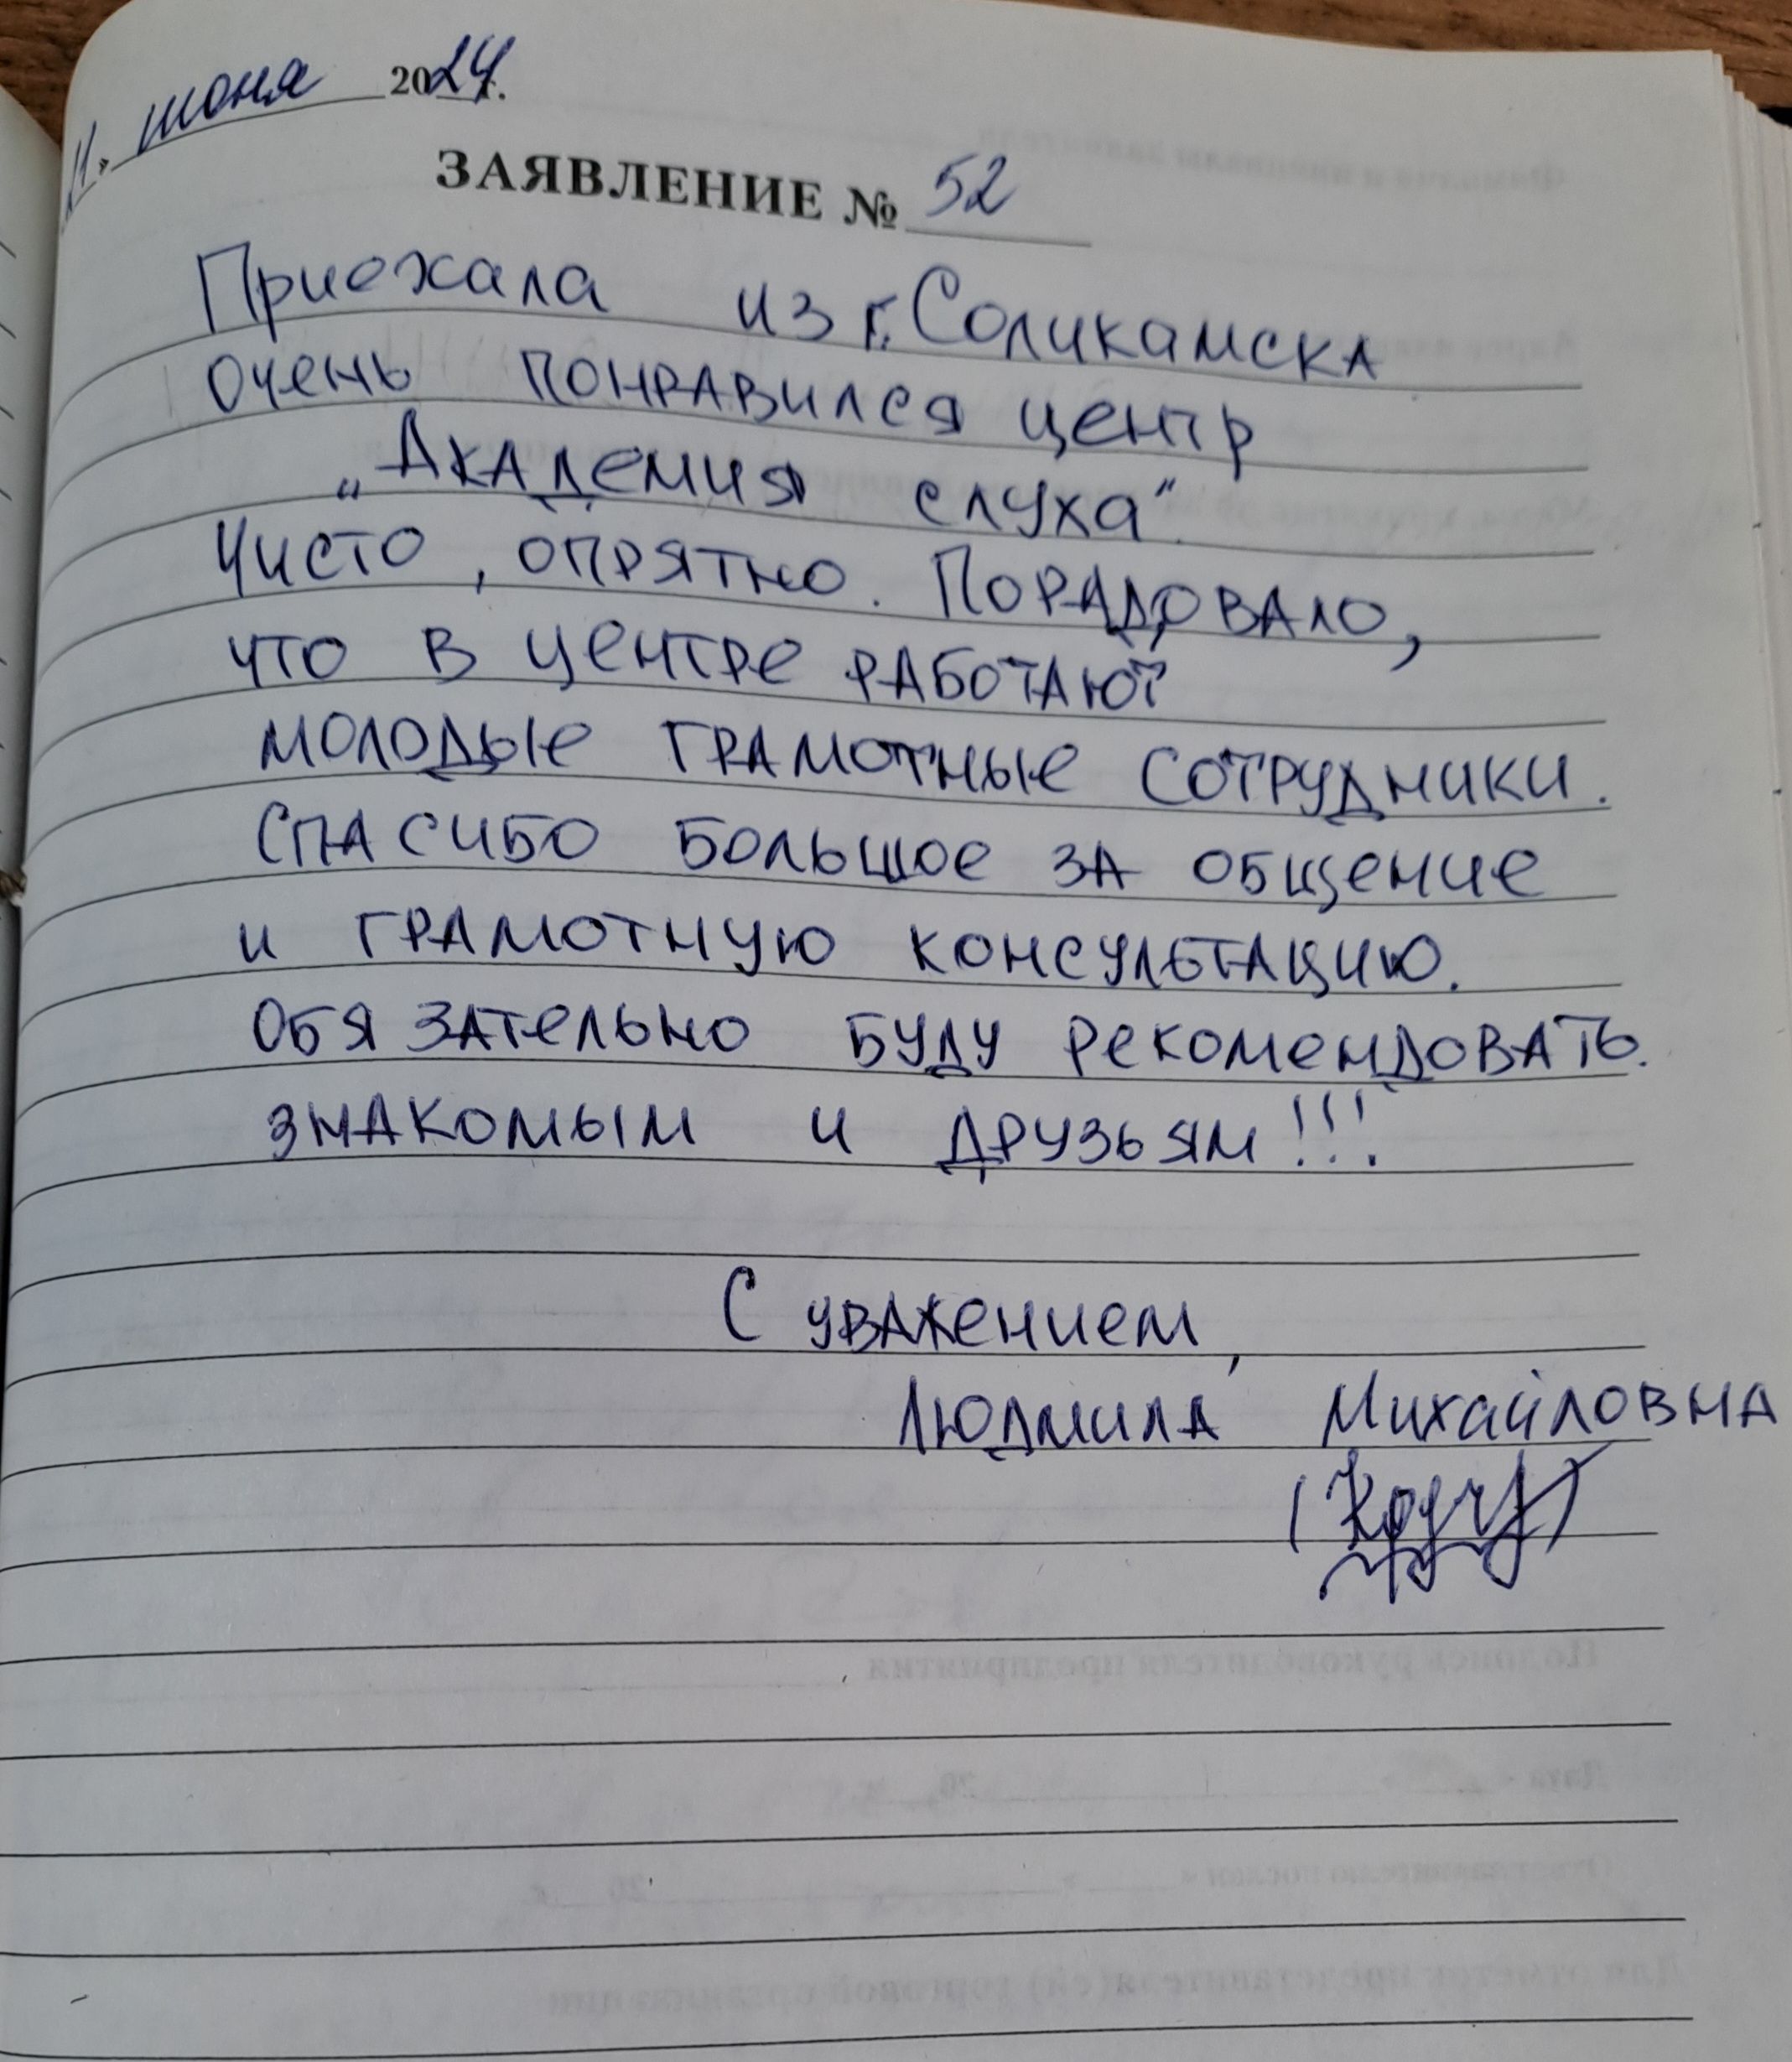 июня 2024г.
ЗАЯВЛЕНИЕ № 52
Приехала из г. Соликамска
очень понравился центр
„Академия слуха".
Чисто, опрятно. Порадовало,
что в центре работают
молодые грамотные сотрудники.
Спасибо большое за общение
и грамотную консультацию.
Обязательно буду рекомендовать.
знакомым и друзьям!!!
С уважением,
Людмила Михайловна